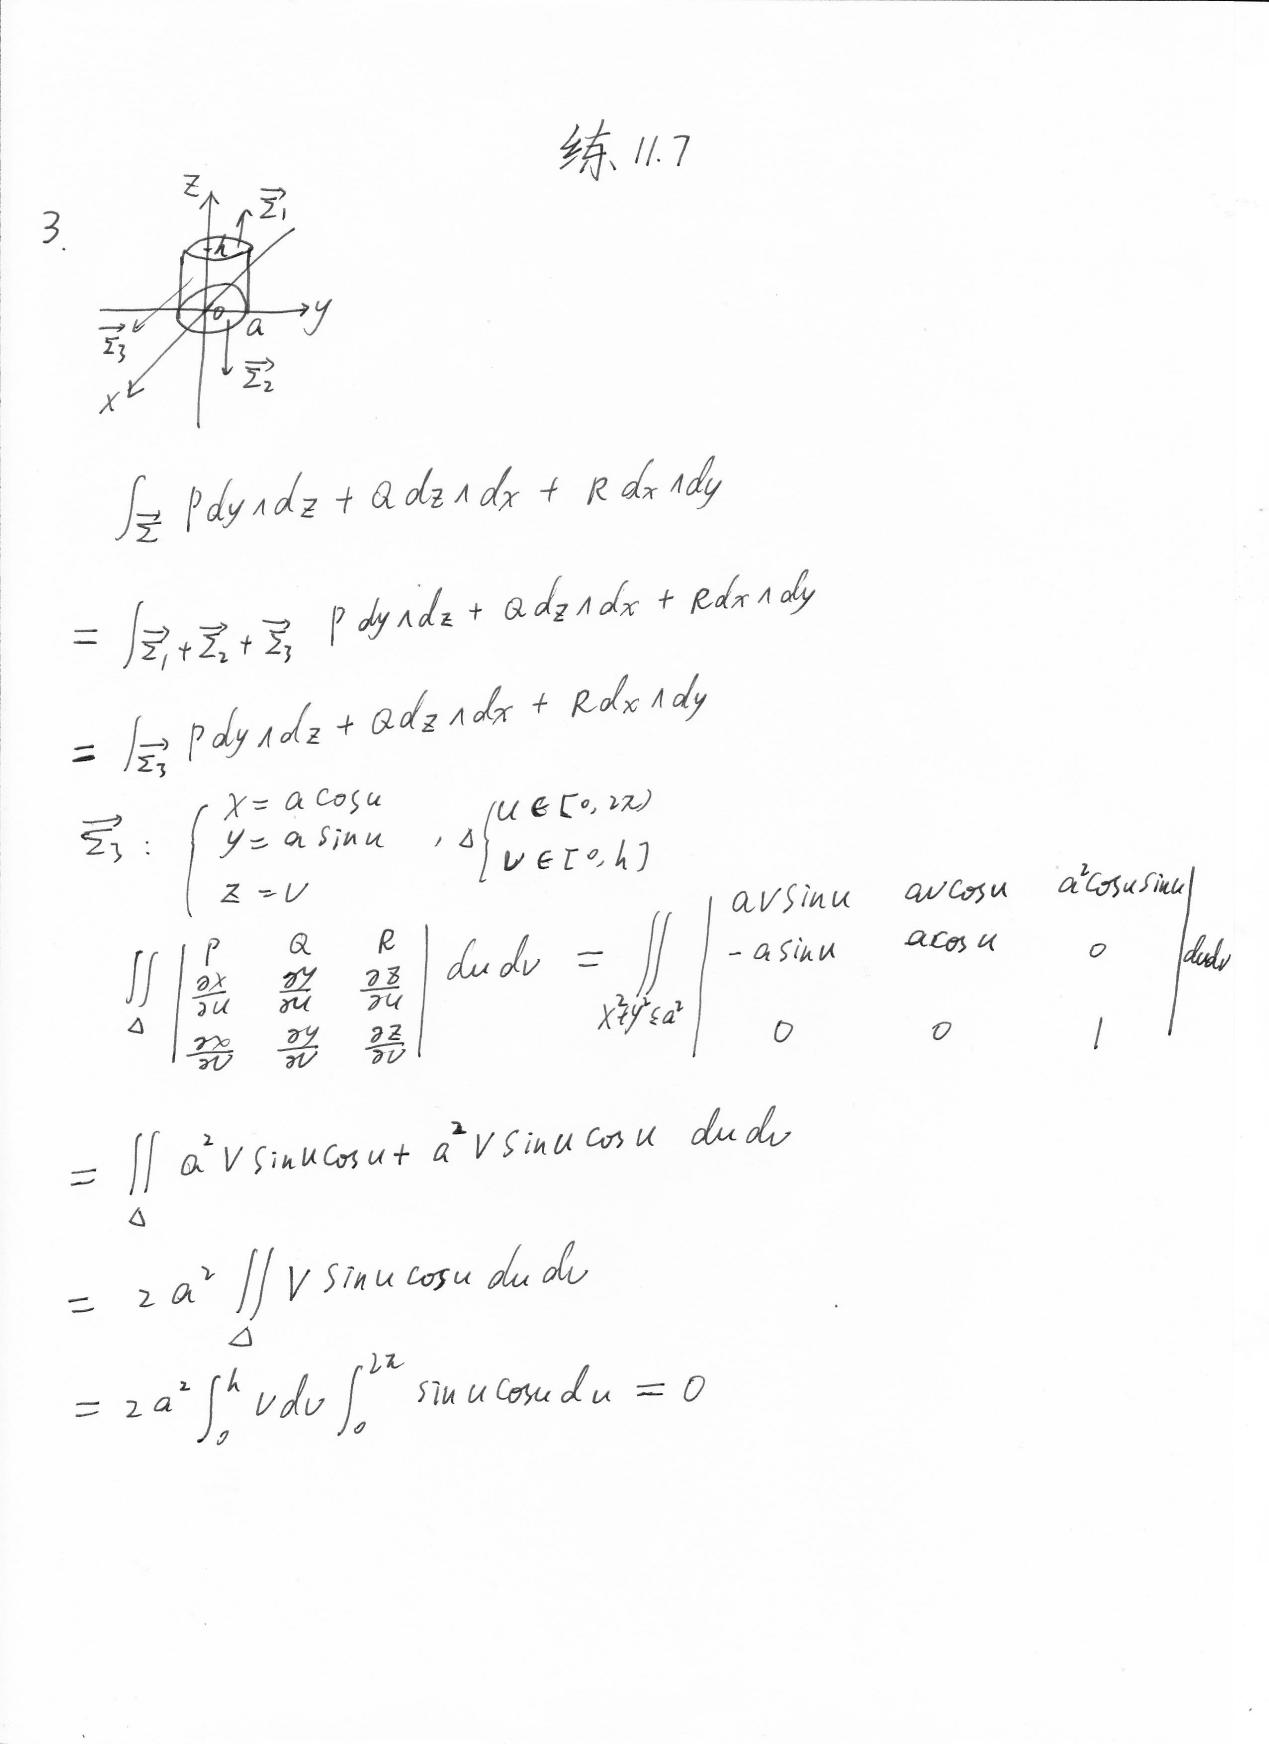 练 11.7
3.
z
Σ⃗₁
h
0
a
y
Σ⃗₃
Σ⃗₂
x
∫_Σ⃗ P dy∧dz + Q dz∧dx + R dx∧dy
= ∫_{Σ⃗₁+Σ⃗₂+Σ⃗₃} P dy∧dz + Q dz∧dx + R dx∧dy
= ∫_{Σ⃗₃} P dy∧dz + Q dz∧dx + R dx∧dy
Σ⃗₃: { x = a cos u
y = a sin u
z = v , Δ { u ∈ [0, 2π)
v ∈ [0, h]
∬_Δ | P Q R
∂x/∂u ∂y/∂u ∂z/∂u
∂x/∂v ∂y/∂v ∂z/∂v | du dv = ∬_{x²+y²≤a²} | av sin u av cos u a² cos u sin u
-a sin u a cos u 0
0 0 1 | du dv
= ∬_Δ a² v sin u cos u + a² v sin u cos u du dv
= 2 a² ∬_Δ v sin u cos u du dv
= 2 a² ∫₀^h v dv ∫₀^{2π} sin u cos u du = 0